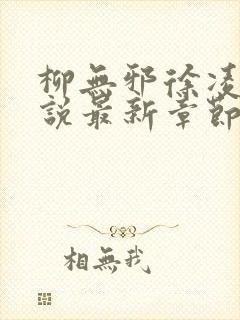 柳無邪徐凌
說最新章節
相無我